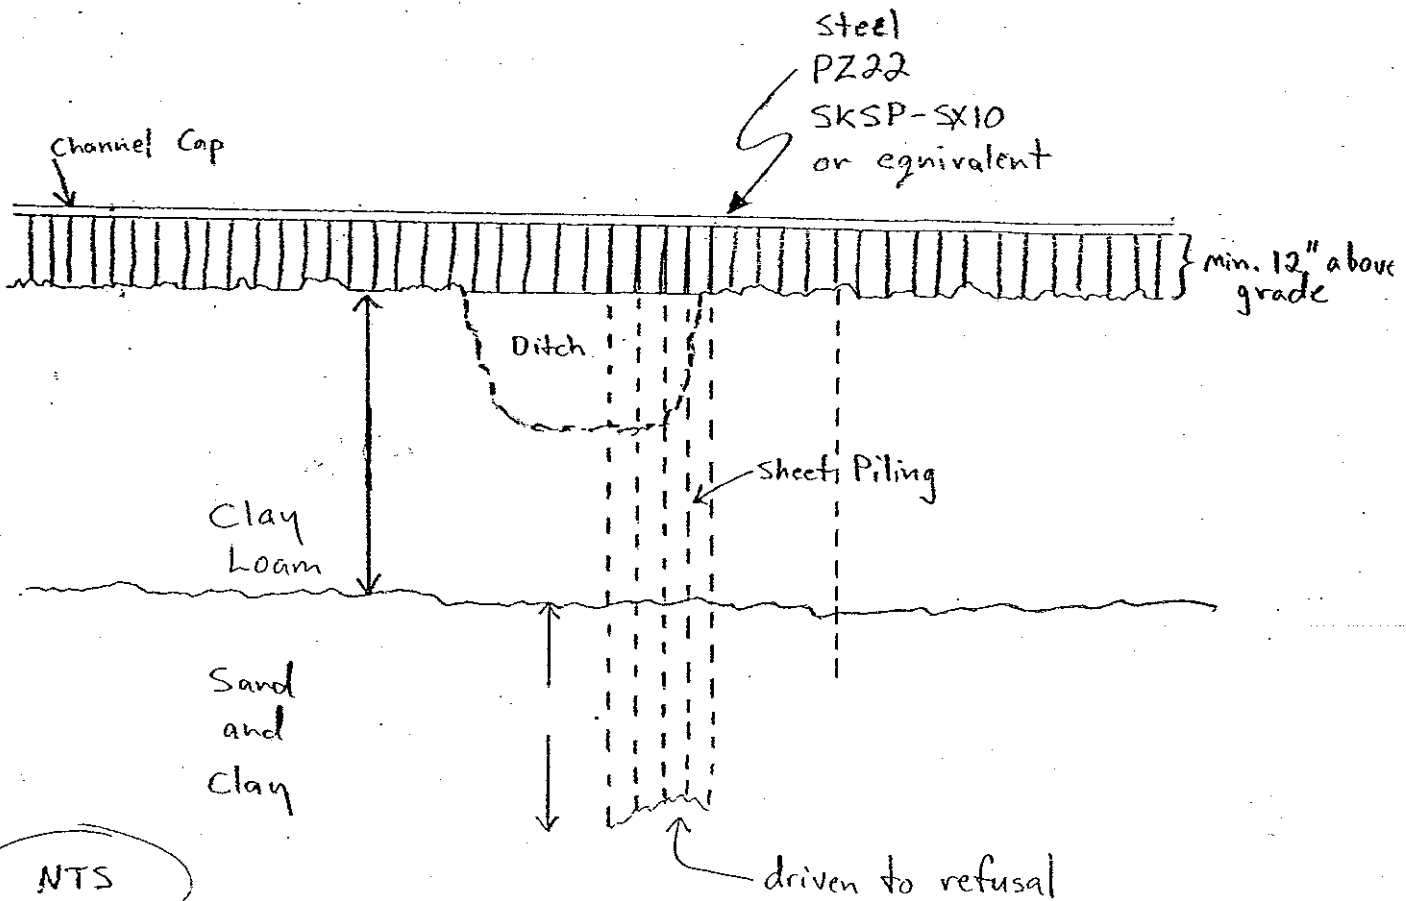 Steel
PZ22
SKSP-SX10
or equivalent
Channel Cap
min. 12" above
grade
Ditch
Sheet Piling
Clay
Loam
Sand
and
Clay
NTS
driven to refusal